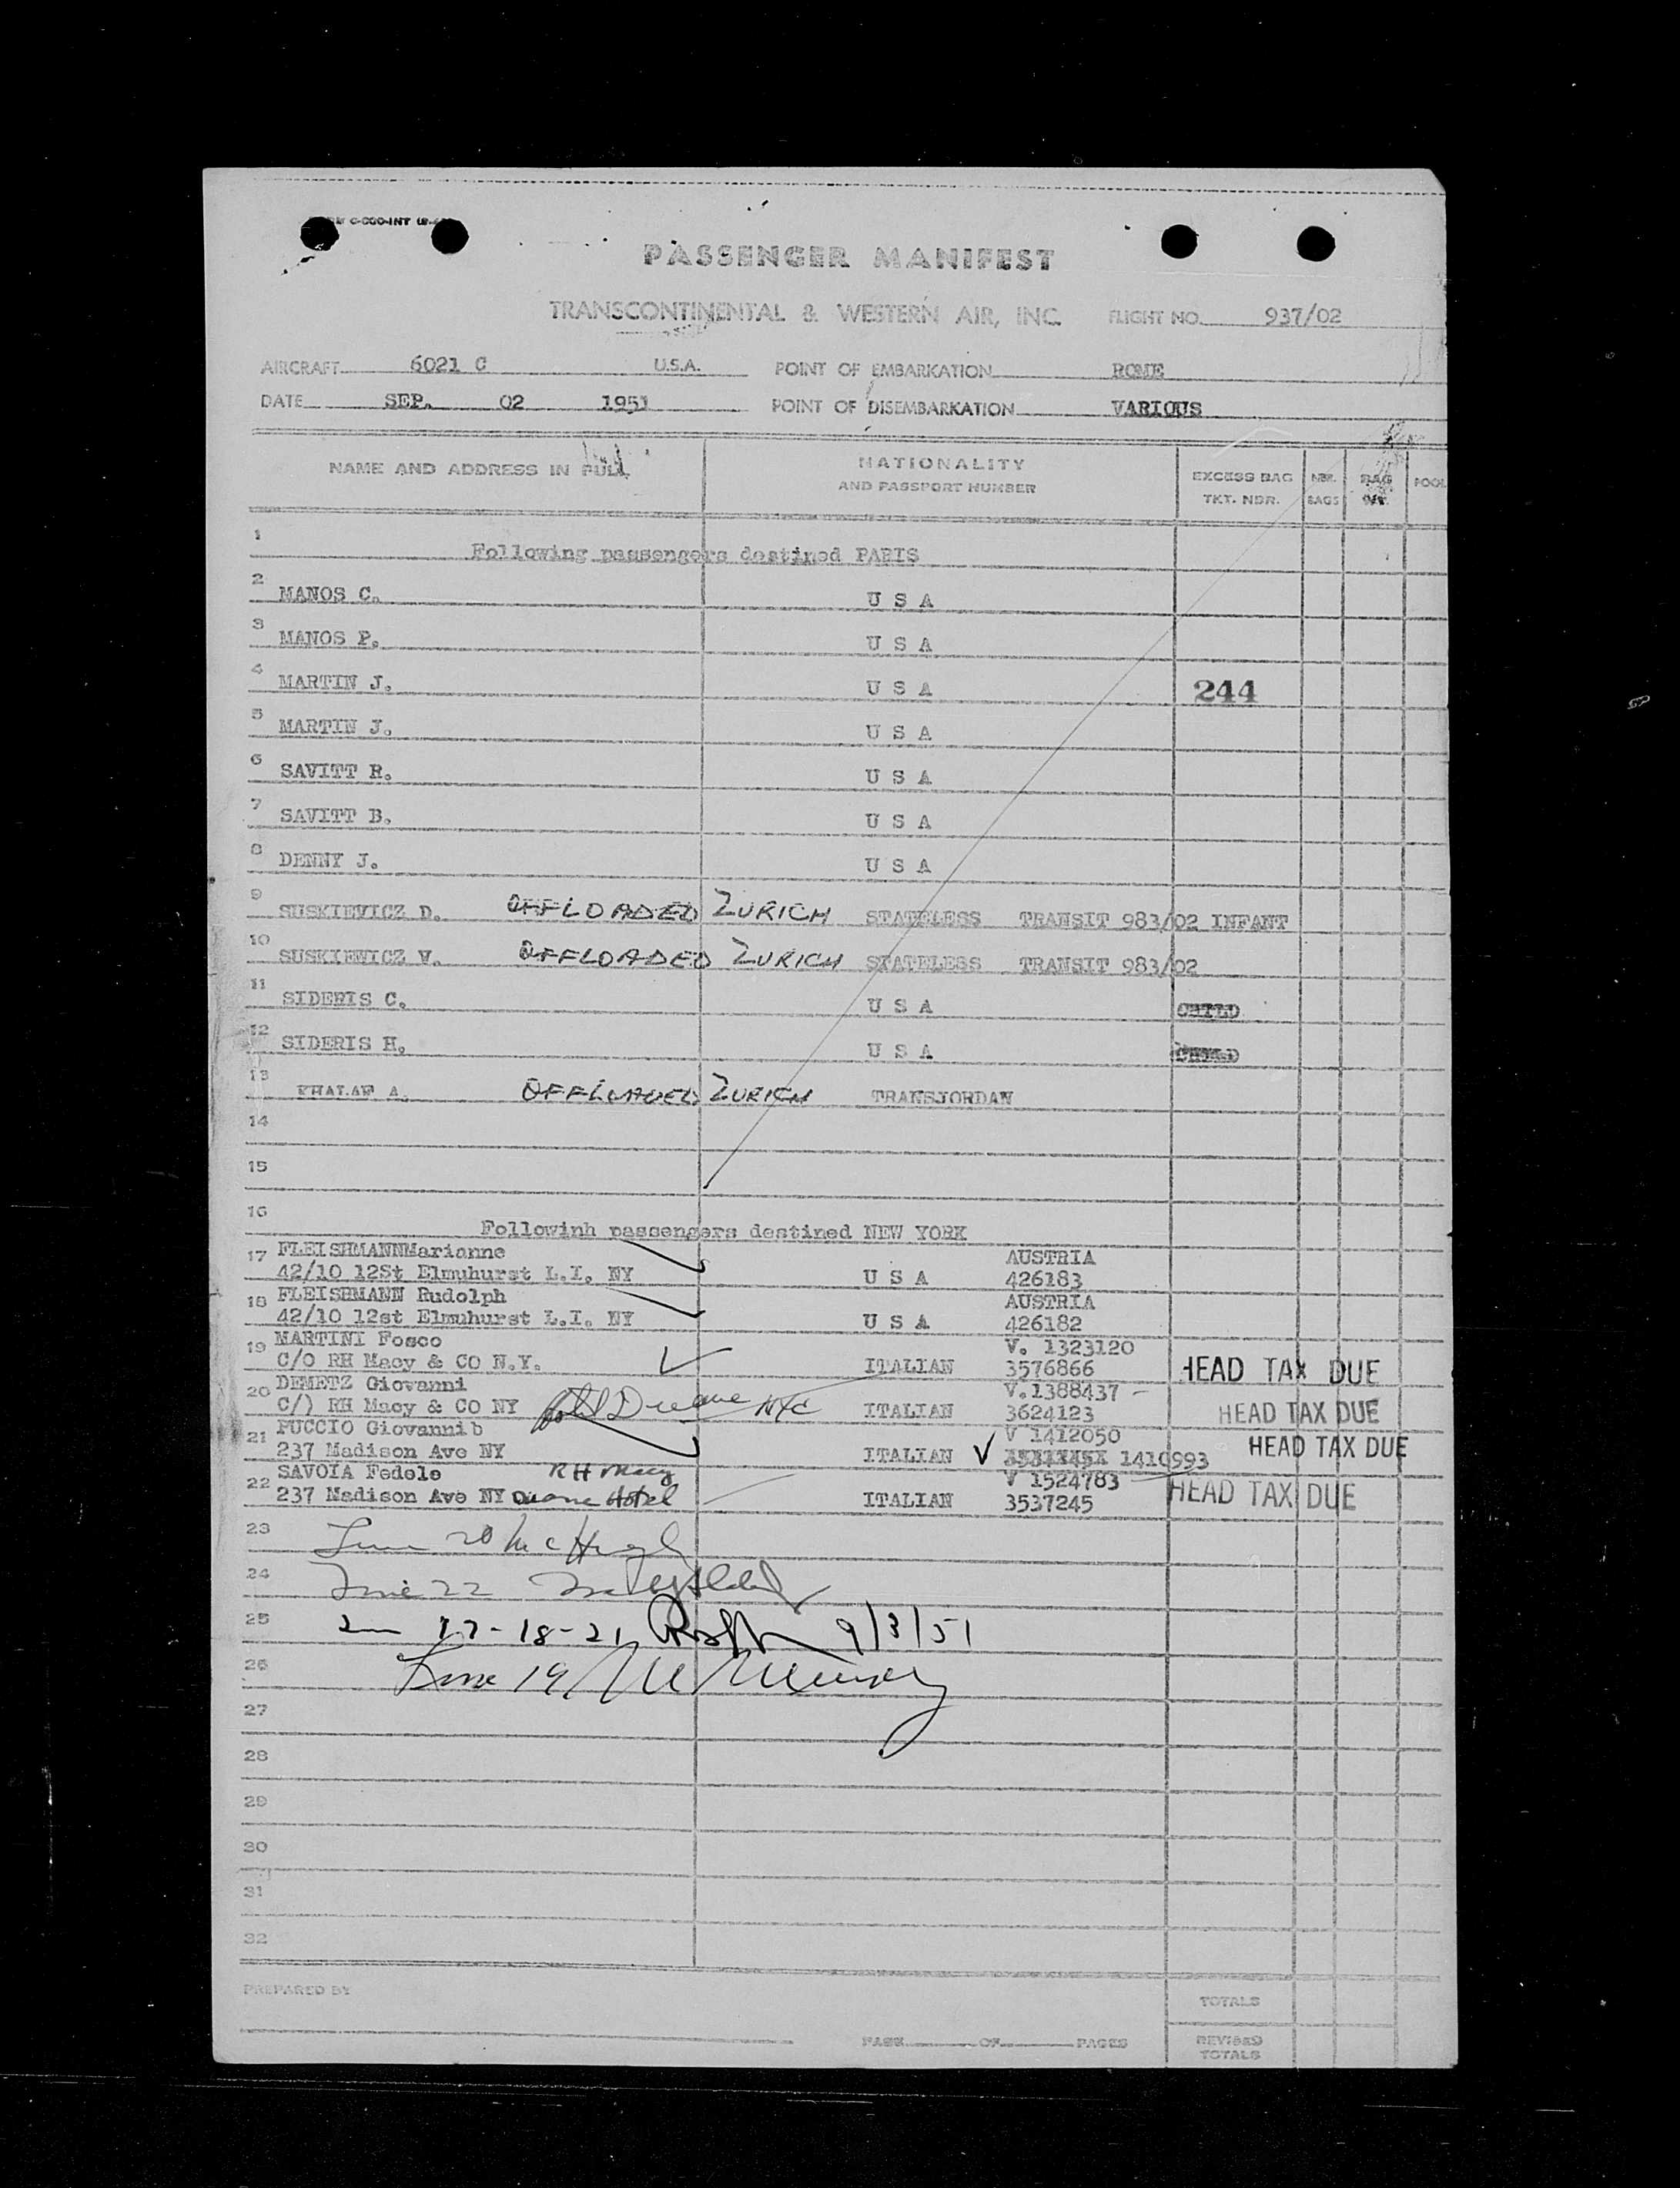 PASSENGER MANIFEST
TRANSCONTINENTAL & WESTERN AIR, INC. FLIGHT NO. 937/02
AIRCRAFT 6021 C U.S.A. POINT OF EMBARKATION ROME
DATE SEP. 02 1951 POINT OF DISEMBARKATION VARIOUS
NAME AND ADDRESS IN FULL NATIONALITY AND PASSPORT NUMBER EXCESS BAG TKT. NBR. NBR. BAGS BAG WT. POOL
1 Following passengers destined PARIS
2 MANOS C. U S A
3 MANOS P. U S A
4 MARTIN J. U S A 244
5 MARTIN J. U S A
6 SAVITT R. U S A
7 SAVITT B. U S A
8 DENNY J. U S A
9 SUSKIEVICZ D. OFFLOADED ZURICH STATELESS TRANSIT 983/02 INFANT
10 SUSKIEWICZ V. OFFLOADED ZURICH STATELESS TRANSIT 983/02
11 SIDERIS C. U S A CHILD
12 SIDERIS H. U S A
13 KHALAF A. OFFLOADED ZURICH TRANSJORDAN
14
15
16 Followinh passengers destined NEW YORK
17 FLEISHMANNMarianne AUSTRIA
42/10 12St Elmuhurst L.I. NY U S A 426183
18 FLEISHMANN Rudolph AUSTRIA
42/10 12st Elmuhurst L.I. NY U S A 426182
19 MARTINI Fosco V. 1323120
C/O RH Macy & CO N.Y. ITALIAN 3576866 HEAD TAX DUE
20 DEMETZ Giovanni V.1388437
C/) RH Macy & CO NY NYC ITALIAN 3624123 HEAD TAX DUE
21 PUCCIO Giovannib V 1412050
237 Madison Ave NY ITALIAN 1410993 HEAD TAX DUE
22 SAVOIA Fedele RH Macy V 1524783
237 Madison Ave NY Duane Hotel ITALIAN 3537245 HEAD TAX DUE
23 Line 20 McHugh
24 Line 22
25 17-18-21 9/3/51
26 Line 19
27
28
29
30
31
32
PREPARED BY TOTALS
PAGE OF PAGES REVISED TOTALS